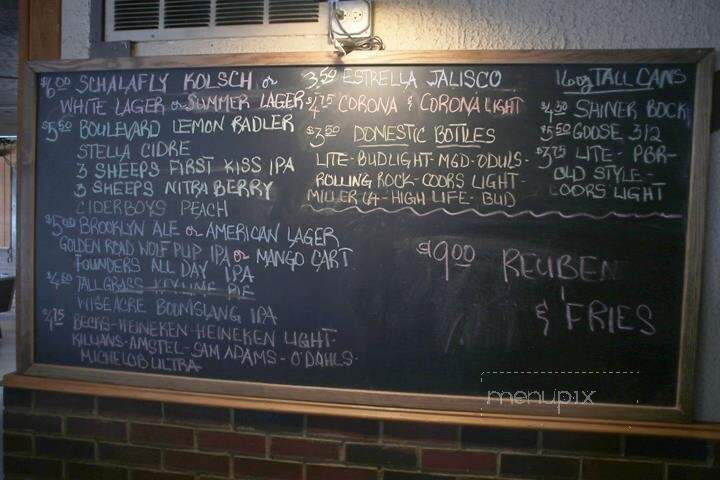 $6.00 SCHALAFLY KOLSCH or
WHITE LAGER or SUMMER LAGER
$5.50 BOULEVARD LEMON RADLER
STELLA CIDRE
3 SHEEPS FIRST KISS IPA
3 SHEEPS NITRA BERRY
CIDERBOYS PEACH
$5.00 BROOKLYN ALE or AMERICAN LAGER
GOLDEN ROAD WOLF PUP IPA or MANGO CART
FOUNDERS ALL DAY IPA
$4.50 TALLGRASS KEYLIME PIE
WISEACRE BOOMSLANG IPA
$4.75 BECKS-HEINEKEN-HEINEKEN LIGHT-
KILLIANS-AMSTEL-SAM ADAMS-O'DAHLS-
MICHELOB ULTRA
3.50 ESTRELLA JALISCO
$4.75 CORONA & CORONA LIGHT
$3.50 DOMESTIC BOTTLES
LITE-BUDLIGHT-MGD-ODULS-
ROLLING ROCK-COORS LIGHT-
MILLER 64-HIGH LIFE-BUD
$9.00 REUBEN
& FRIES
16oz TALL CANS
$4.50 SHINER BOCK
$5.50 GOOSE 312
$3.75 LITE-PBR-
OLD STYLE-
COORS LIGHT
menupix